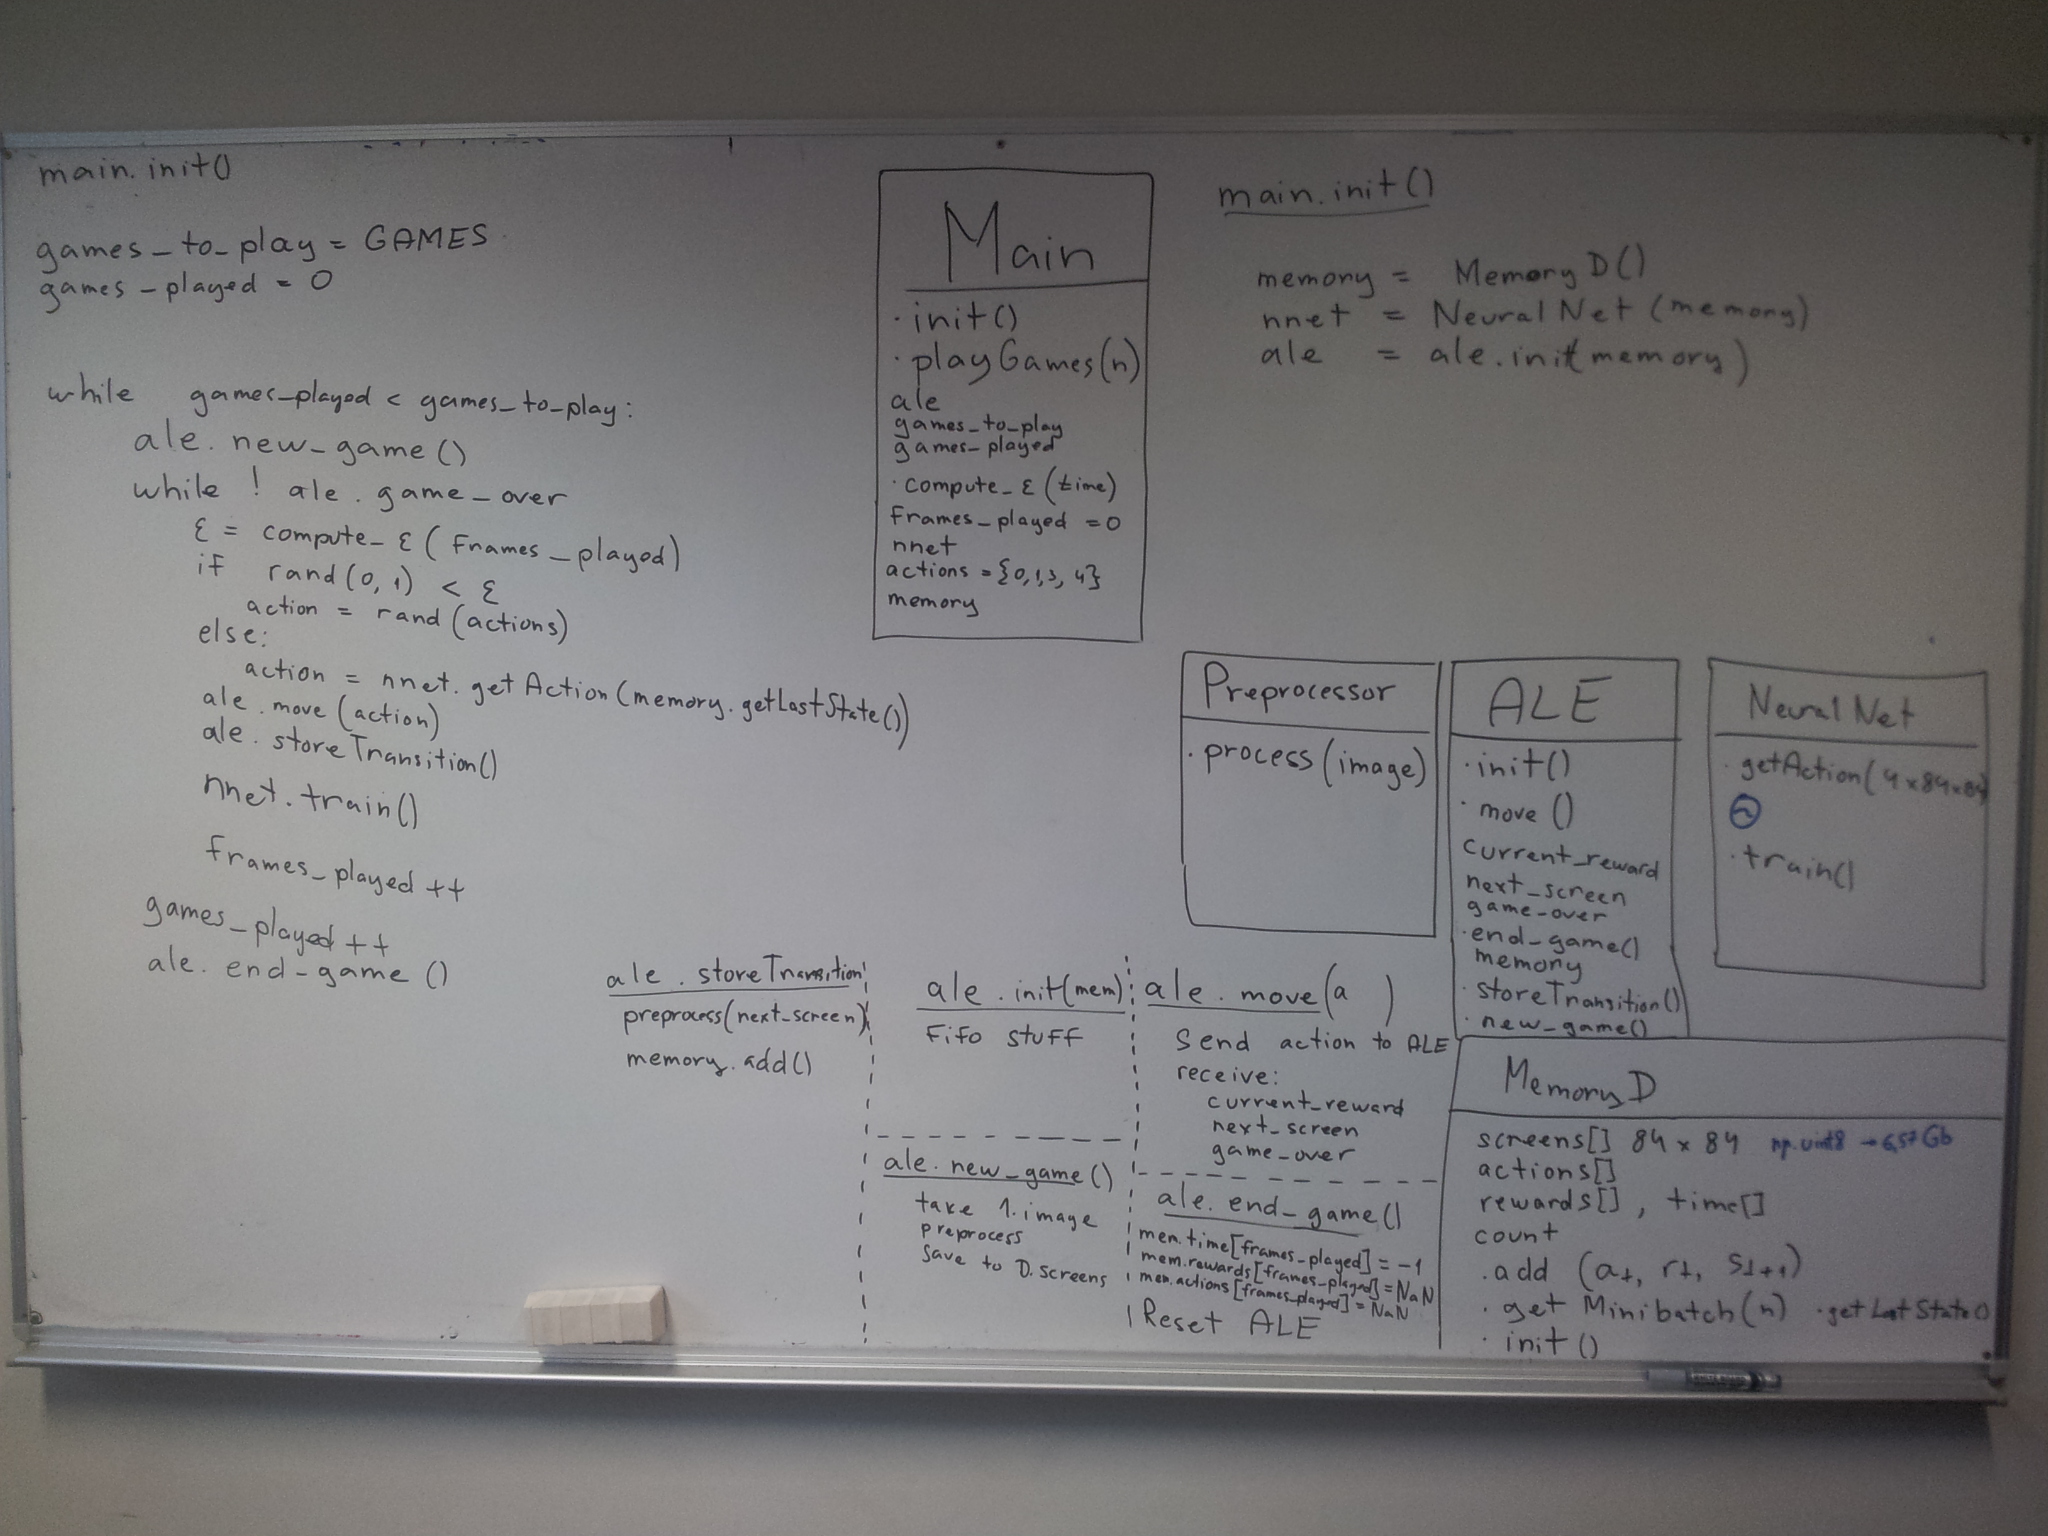 main.init()
games_to_play = GAMES
games_played = 0
while games_played < games_to_play:
ale.new_game()
while ! ale.game_over
ε = compute_ε(frames_played)
if rand(0,1) < ε
action = rand(actions)
else:
action = nnet.getAction(memory.getLastState())
ale.move(action)
ale.storeTransition()
nnet.train()
frames_played ++
games_played ++
ale.end_game()
Main
· init()
· playGames(n)
ale
games_to_play
games_played
· compute_ε(time)
frames_played = 0
nnet
actions = {0,1,3,4}
memory
main.init()
memory = MemoryD()
nnet = NeuralNet(memory)
ale = ale.init(memory)
Preprocessor
· process(image)
ALE
· init()
· move()
current_reward
next_screen
game_over
· end_game()
memory
· storeTransition()
· new_game()
Neural Net
· getAction(4x84x84
· train()
ale.storeTransition
preprocess(next_screen)
memory.add()
ale.init(mem)
Fifo stuff
ale.move(a )
Send action to ALE
receive:
current_reward
next_screen
game_over
ale.new_game()
take 1.image
preprocess
save to D.screens
ale.end_game()
mem.time[frames_played] = -1
mem.rewards[frames_played] = NaN
mem.actions[frames_played] = NaN
Reset ALE
MemoryD
screens[] 84 x 84 np.uint8 → 6,57 Gb
actions[]
rewards[], time[]
count
· add (at, rt, st+1)
· getMinibatch(n) · getLastState()
· init()